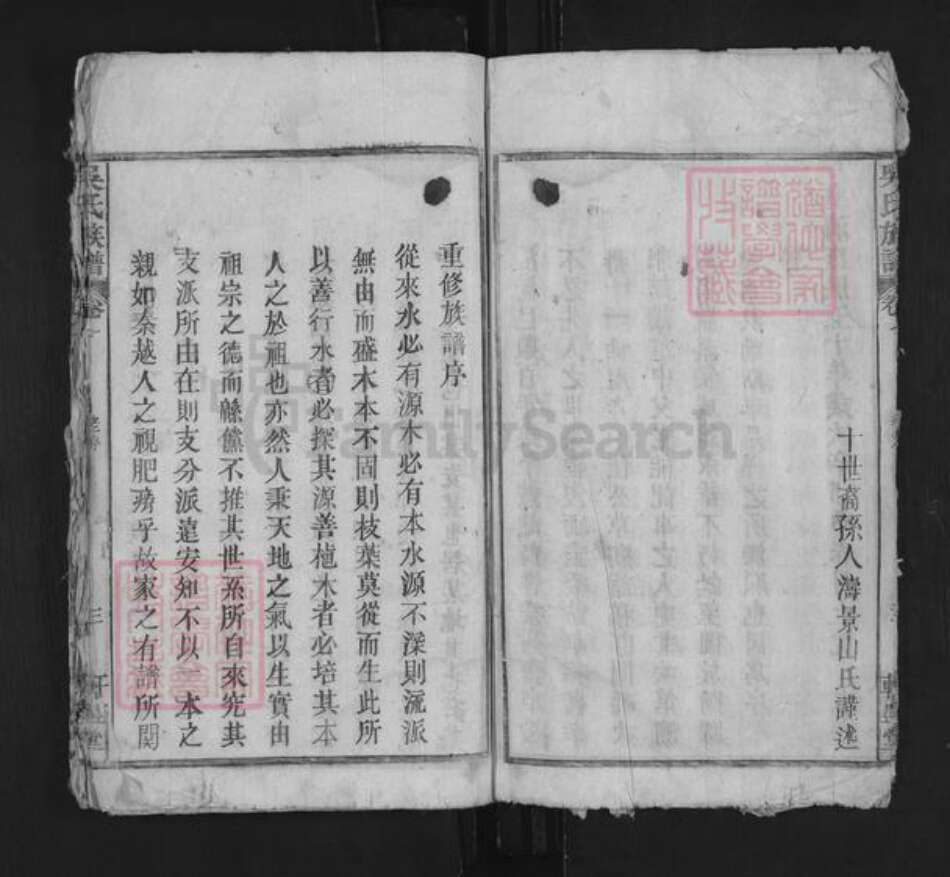 十世裔孫人濤景山氏謹述
重修族譜序
從來水必有源木必有本水源不深則流派
無由而盛木本不固則枝葉莫從而生此所
以善行水者必探其源善植木者必培其本
人之於祖也亦然人秉天地之氣以生實由
祖宗之德而緜儻不推其世系所自來究其
支派所由在則支分派遠安知不以一本之
親如秦越人之視肥瘠乎故家之有譜所関
吳氏族譜
卷
三
FamilySearch